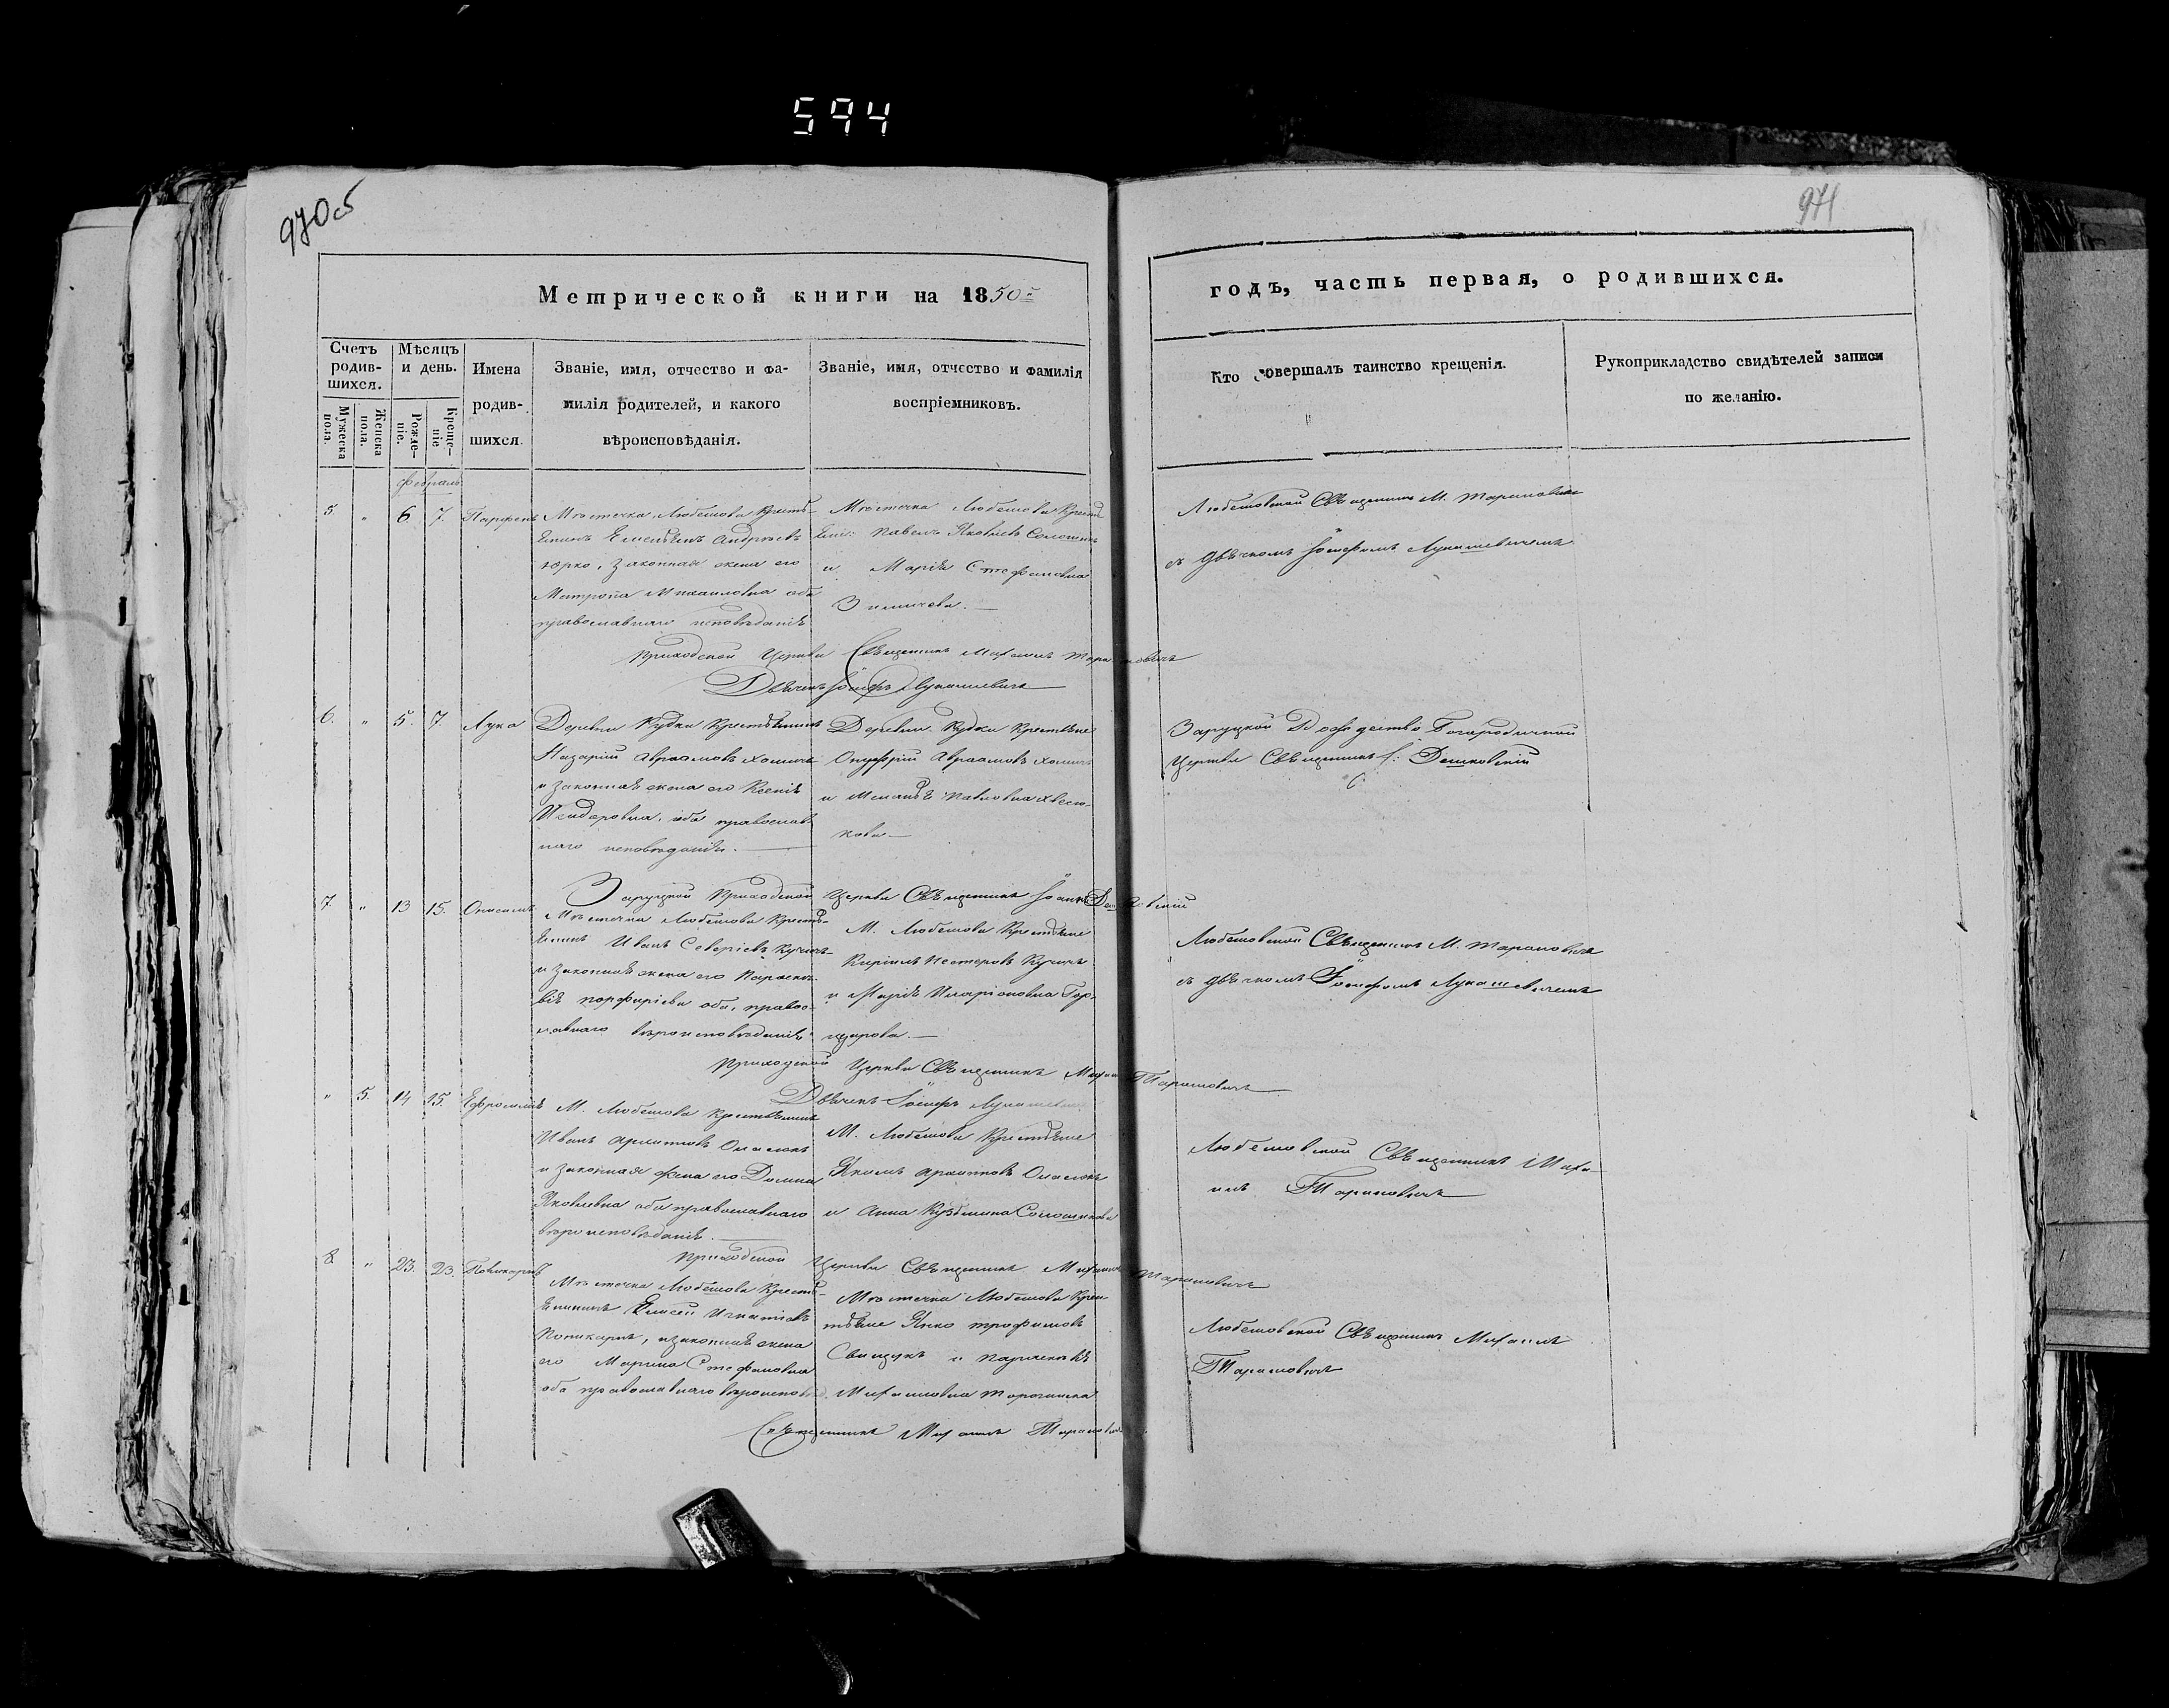 594
970об
971
Метрической книги на 1850й
годъ, часть первая, о родившихся.
Счетъ родив-
шихся.
Мужеска пола.
Женска пола.
Мѣсяцъ и день.
Рожде-
ніе.
Креще-
ніе
Имена
родив-
шихся.
Званіе, имя, отчество и фа-
милія родителей, и какого
вѣроисповѣданія.
Званіе, имя, отчество и фамилія
воспріемниковъ.
Кто совершалъ таинство крещенія.
Рукоприкладство свидѣтелей записи
по желанію.
Февраль
5. " 6. 7. Парфенъ
Мѣстечка Любешова Кресть-
янинъ Емельянъ Андреевъ
Юрко, законная жена его
Матрона Михаиловна оба
православнаго исповѣданія
Мѣстечка Любешова Кресть
яне: Павелъ Яковлевъ
и Марія Стефановна
Любешовской Священникъ М. Тарановичь
съ дьячкомъ Іосифомъ Лукашевичемъ
Приходской Церкви Священникъ Михаилъ Тарановичь
Дьячекъ Іосифъ Лукашевичь
6. " 5. 7. Лука
Деревни Кудки Крестьянинъ
Назарій Авраамовъ Хомичь
и законная жена его Ксенія
оба православ
наго исповѣданія.
Деревни Кудки Крестьяне
Онуфрій Авраамовъ Хомичь
и Павловна
Заруцкой Рождество Богородичной
Церкви Священникъ І: Дешковскій
Заруцкой Приходской Церкви Священникъ Іоаннъ Дешковскій
7. " 13 15. Онисимъ
Мѣстечка Любешова Кресть-
янинъ Иванъ
и законная жена его Параске-
вія Порфиріева оба, правос-
лавнаго вѣроисповѣданія
М. Любешова Крестьяне
Кирилъ Нестеровъ
и Марія Иларіоновна Гор-
щарова.
Любешовской Священникъ М. Тарановичь
съ дьячкомъ Іосифомъ Лукашевичемъ
Приходской Церкви Священникъ Михаилъ Тарановичь
Дьячекъ Іосифъ Лукашевичь
" 5. 14 15. Ефросинія
М. Любешова Крестьянинъ
Иванъ
и законная жена его Домна
Яковлевна оба православнаго
вѣроисповѣданія.
М. Любешова Крестьяне
и Анна Кузьмина
Любешовской Священникъ Миха-
илъ Тарановичь
Приходской Церкви Священникъ Михаилъ Тарановичь
8. " 23. 23. Поликарпъ
Мѣстечка Любешова Кресть-
янинъ Елисей Игнатіевъ
Поликарпъ, и законная жена
его Марина Стефановна
оба православнаго вѣроисповѣд.
Мѣстечка Любешова Крес-
тьяне Янко Трофимовъ
Свищукъ и
Михаиловна
Любешовской Священникъ Михаилъ
Тарановичь
Священникъ Михаилъ Тарановичь